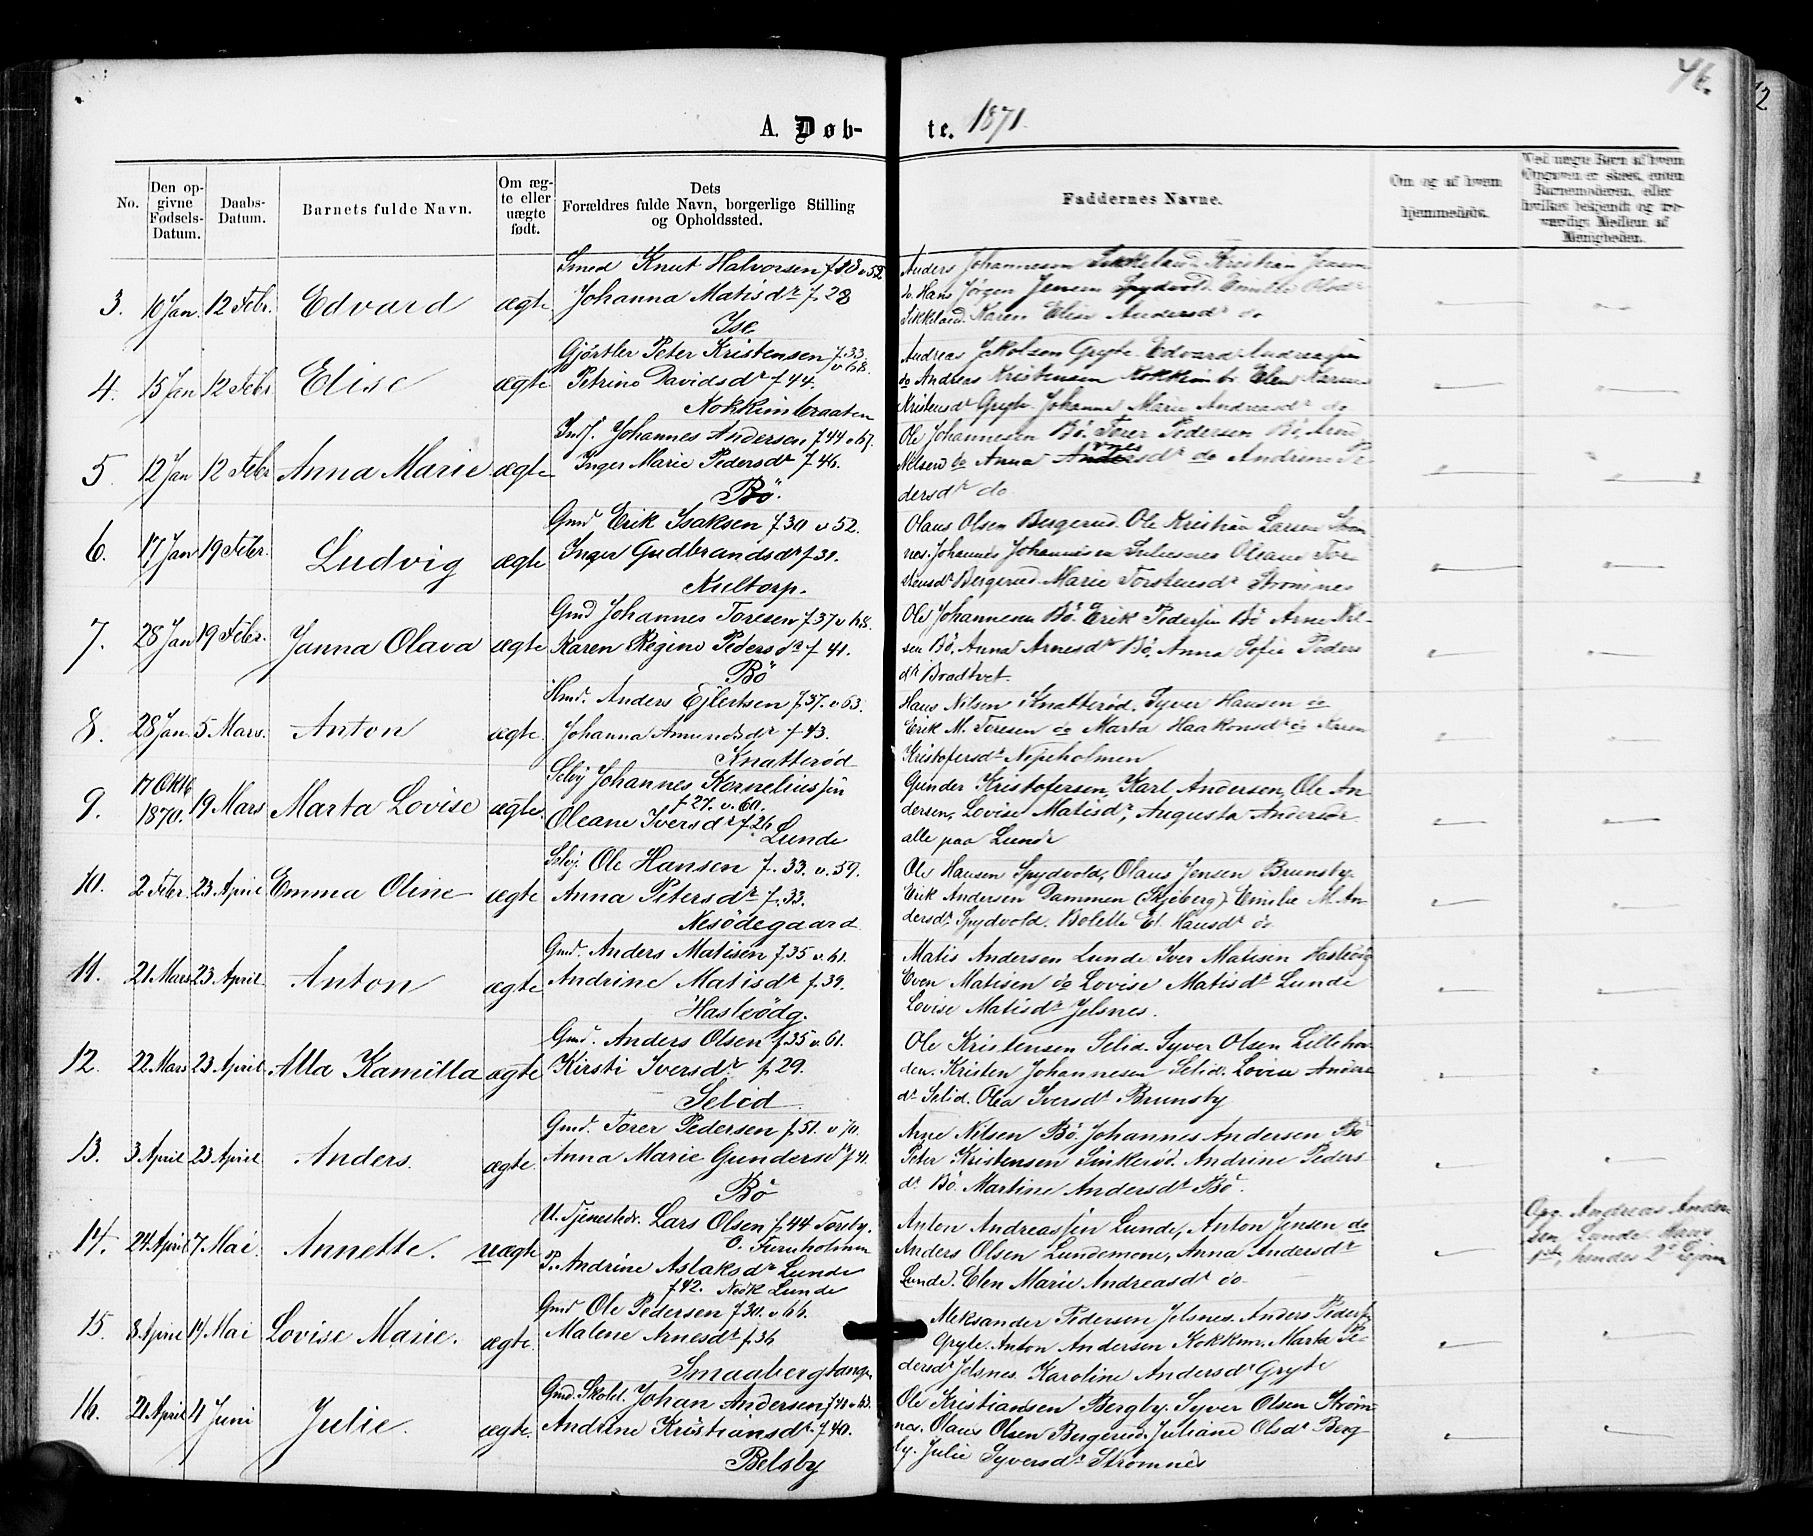 46.
12
A. Døb- te. 1871.
No.
Den op-
givne
Fødsels-
Datum.
Daabs-
Datum.
Barnets fulde Navn.
Om æg-
te eller
uægte
født.
Dets
Forældres fulde Navn, borgerlige Stilling
og Opholdssted.
Faddernes Navne.
Om og af hvem
hjemmedøbt.
Ved uægte Børn af hvem
Opgaven er skeet, enten
Barnemoderen, eller
hvilket bekjendt og tro-
værdigt Medlem af
Menigheden.
3. 10 Jan. 12 Febr. Edvard ægte
Smed Knut Halvorsen f. v 52
Johanna Matisdr f. 28
Ise
Anders Johannesen Sikkeland. Kristian Jensen
do. Hans Jørgen Jensen Spydvold. Emilie Olsdr
Sikkeland. Karen Elise Andersdr do
4. 15 Jan 12 Febr Elise ægte
Gjørtler Peter Kristensen f. 33.
v 68.
Petrine Davidsdr f. 44.
Kokkimbraaten
Andreas Jakobsen Gryte. Edvard Andreassen
do Andreas Kristensen Kokkim Elen Karine
Kristensdr Gryte. Johanne Marie Andreasdr do
5. 12 Jan 12 Febr Anna Marie ægte
Indf. Johannes Andersen f. 44 v 67.
Inger Marie Pedersdr f. 46.
Bö.
Ole Johannesen Bö. Torer Pedersen Bö, Arne
Nilsen do Anna Andersdr do Andrine Pe-
dersdr do
6. 17 Jan 19 Febr. Ludvig ægte
Gmd Erik Isaksen f. 30 v 52.
Inger Gudbrandsdr f. 31.
Nieltorp.
Olaus Olsen Bergerud. Ole Kristian Larsen Strøm-
nes. Johannes Johannesen Oleane Tor-
stensdr Bergerud. Marie Torstensdr Strømnes
7. 28 Jan 19 Febr. Janna Olava ægte
Gmd Johannes Toresen f. 37 v 68.
Karen Regine Pedersdr f 41.
Bö
Ole Johannesen Bö. Erik Pedersen Bö Arne Nil-
sen Bö, Anna Arnesdr Bö, Anna Sofie Peders
dr Bradtvet.
8. 28 Jan. 5 Mars. Anton ægte.
Hmd. Anders Ejlertsen f. 37. v. 63.
Johanna Amundsdr f 43.
Knatterød
Hans Nilsen Knatterød. Syver Hansen do
Erik M. Toresen do Marta Haakonsdr do Karen
Kristofersdr Nipeholmen
9. 17 Oktb
1870. 19 Mars Marta Lovise ægte.
Selvj Johannes Korneliussen
f 27. v. 60.
Oleane Iversdr f. 26
Lunde
Gunder Kristofersen, Karl Andersen, Ole An-
dersen, Lovise Matisdr, Augusta Andersdr
alle paa Lunde
10. 2 Febr. 23 April Emma Oline ægte
Selvj. Ole Hansen f. 33. v. 59.
Anna Petersdr f. 33.
Nesödegaard
Ole Hansen Spydvold, Olaus Jensen Brunsby.
Erik Andersen Dammen (Skjeberg) Emilie M. An-
dersdr Spydvold. Bolette El. Hansdr do
11. 21 Mars 23 April Anton ægte
Gmd. Anders Matisen f. 35 v. 61.
Andrine Matisdr f. 39.
Haslödg.
Matis Andersen Lunde Iver Matisen Haslödg
Even Matisen do Lovise Matisdr Lunde
Lovise Matisdr Jelsnes.
12. 22 Mars 23 April Alla Kamilla ægte
Gmd. Anders Olsen f. 35 v. 61.
Kirsti Iversdr. f. 29.
Selid
Ole Kristensen Selid. Syver Olsen Lillehov-
den. Kristen Johannesen Selid. Lovise Anders
dr Selid. Olea Iversdr Brunsby
13. 3 April 23 April Anders. ægte.
Gmd. Torer Pedersen f. 51. v 70.
Anna Marie Gundersdr f 41.
Bö
Arne Nilsen Bö. Johannes Andersen Bö
Peter Kristensen Sinkerød. Andrine Peders
dr Bö. Martine Andersdr Bö.
14. 24 April 7 Mai. Annette. uægte
U. Tjenestdr. Lars Olsen f. 44 Torsby.
o. Furuholmen
P. Andrine Aslaksdr Lunde
f 42. Lunde
Anton Andreassen Lunde, Anton Jensen do
Anders Olsen Lundemone, Anna Andersdr
Lunde. Elen Marie Andreasdr do
Opg. Andreas Ander-
sen, Lunde. Hans
1ste, hendes 2de Lejerm
15. 3 April 14 Mai Lovise Marie. ægte.
Gmd Ole Pedersen f. 30. v. 66.
Malene Arnesdr f. 36
Smaabergtangen
Aleksander Pedersen Jelsnes. Anders Peders
Gryte. Anton Andersen Kokkim. Marta Pe-
dersdr Jelsnes. Karoline Andersdr Gryte
16. 21 April 4 Juni Julie. ægte.
Gmd. Skolel. Johan Andersen
Andrine Kristiansdr. f. 40.
Belsby
Ole Kristiansen Bergby. Syver Olsen Strøm-
nes. Olaus Olsen Bergerud. Juliane Olsdr Berg-
by. Julie Syversdr Strømnes